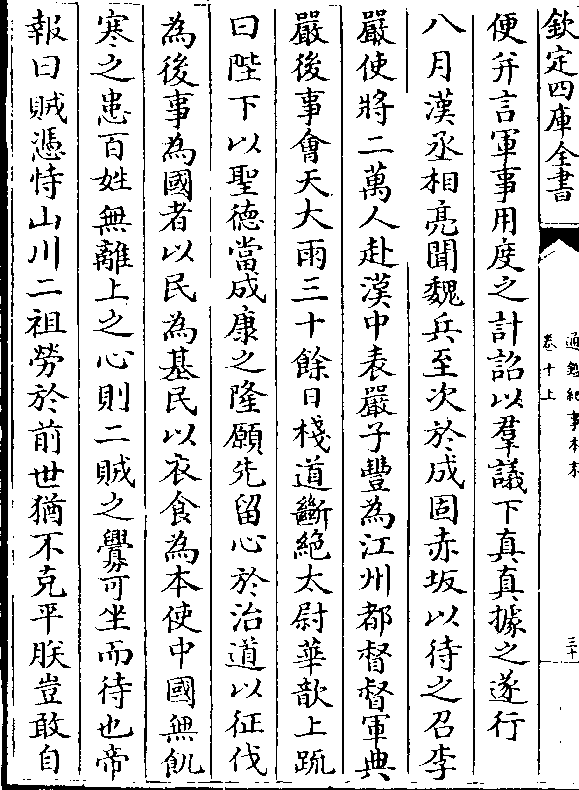 欽定四庫全書
通鑑紀事本末
卷十上
三十
便并言軍事用度之計詔以羣議下真真據之遂行
八月漢丞相亮聞魏兵至次於成固赤坂以待之召李
嚴使將二萬人赴漢中表嚴子豐為江州都督督軍典
嚴後事會天大雨三十餘日棧道斷絶太尉華歆上疏
曰陛下以聖德當成康之隆願先留心於治道以征伐
為後事為國者以民為基民以衣食為本使中國無飢
寒之患百姓無離上之心則二賊之釁可坐而待也帝
報曰賊憑恃山川二祖勞於前世猶不克平朕豈敢自